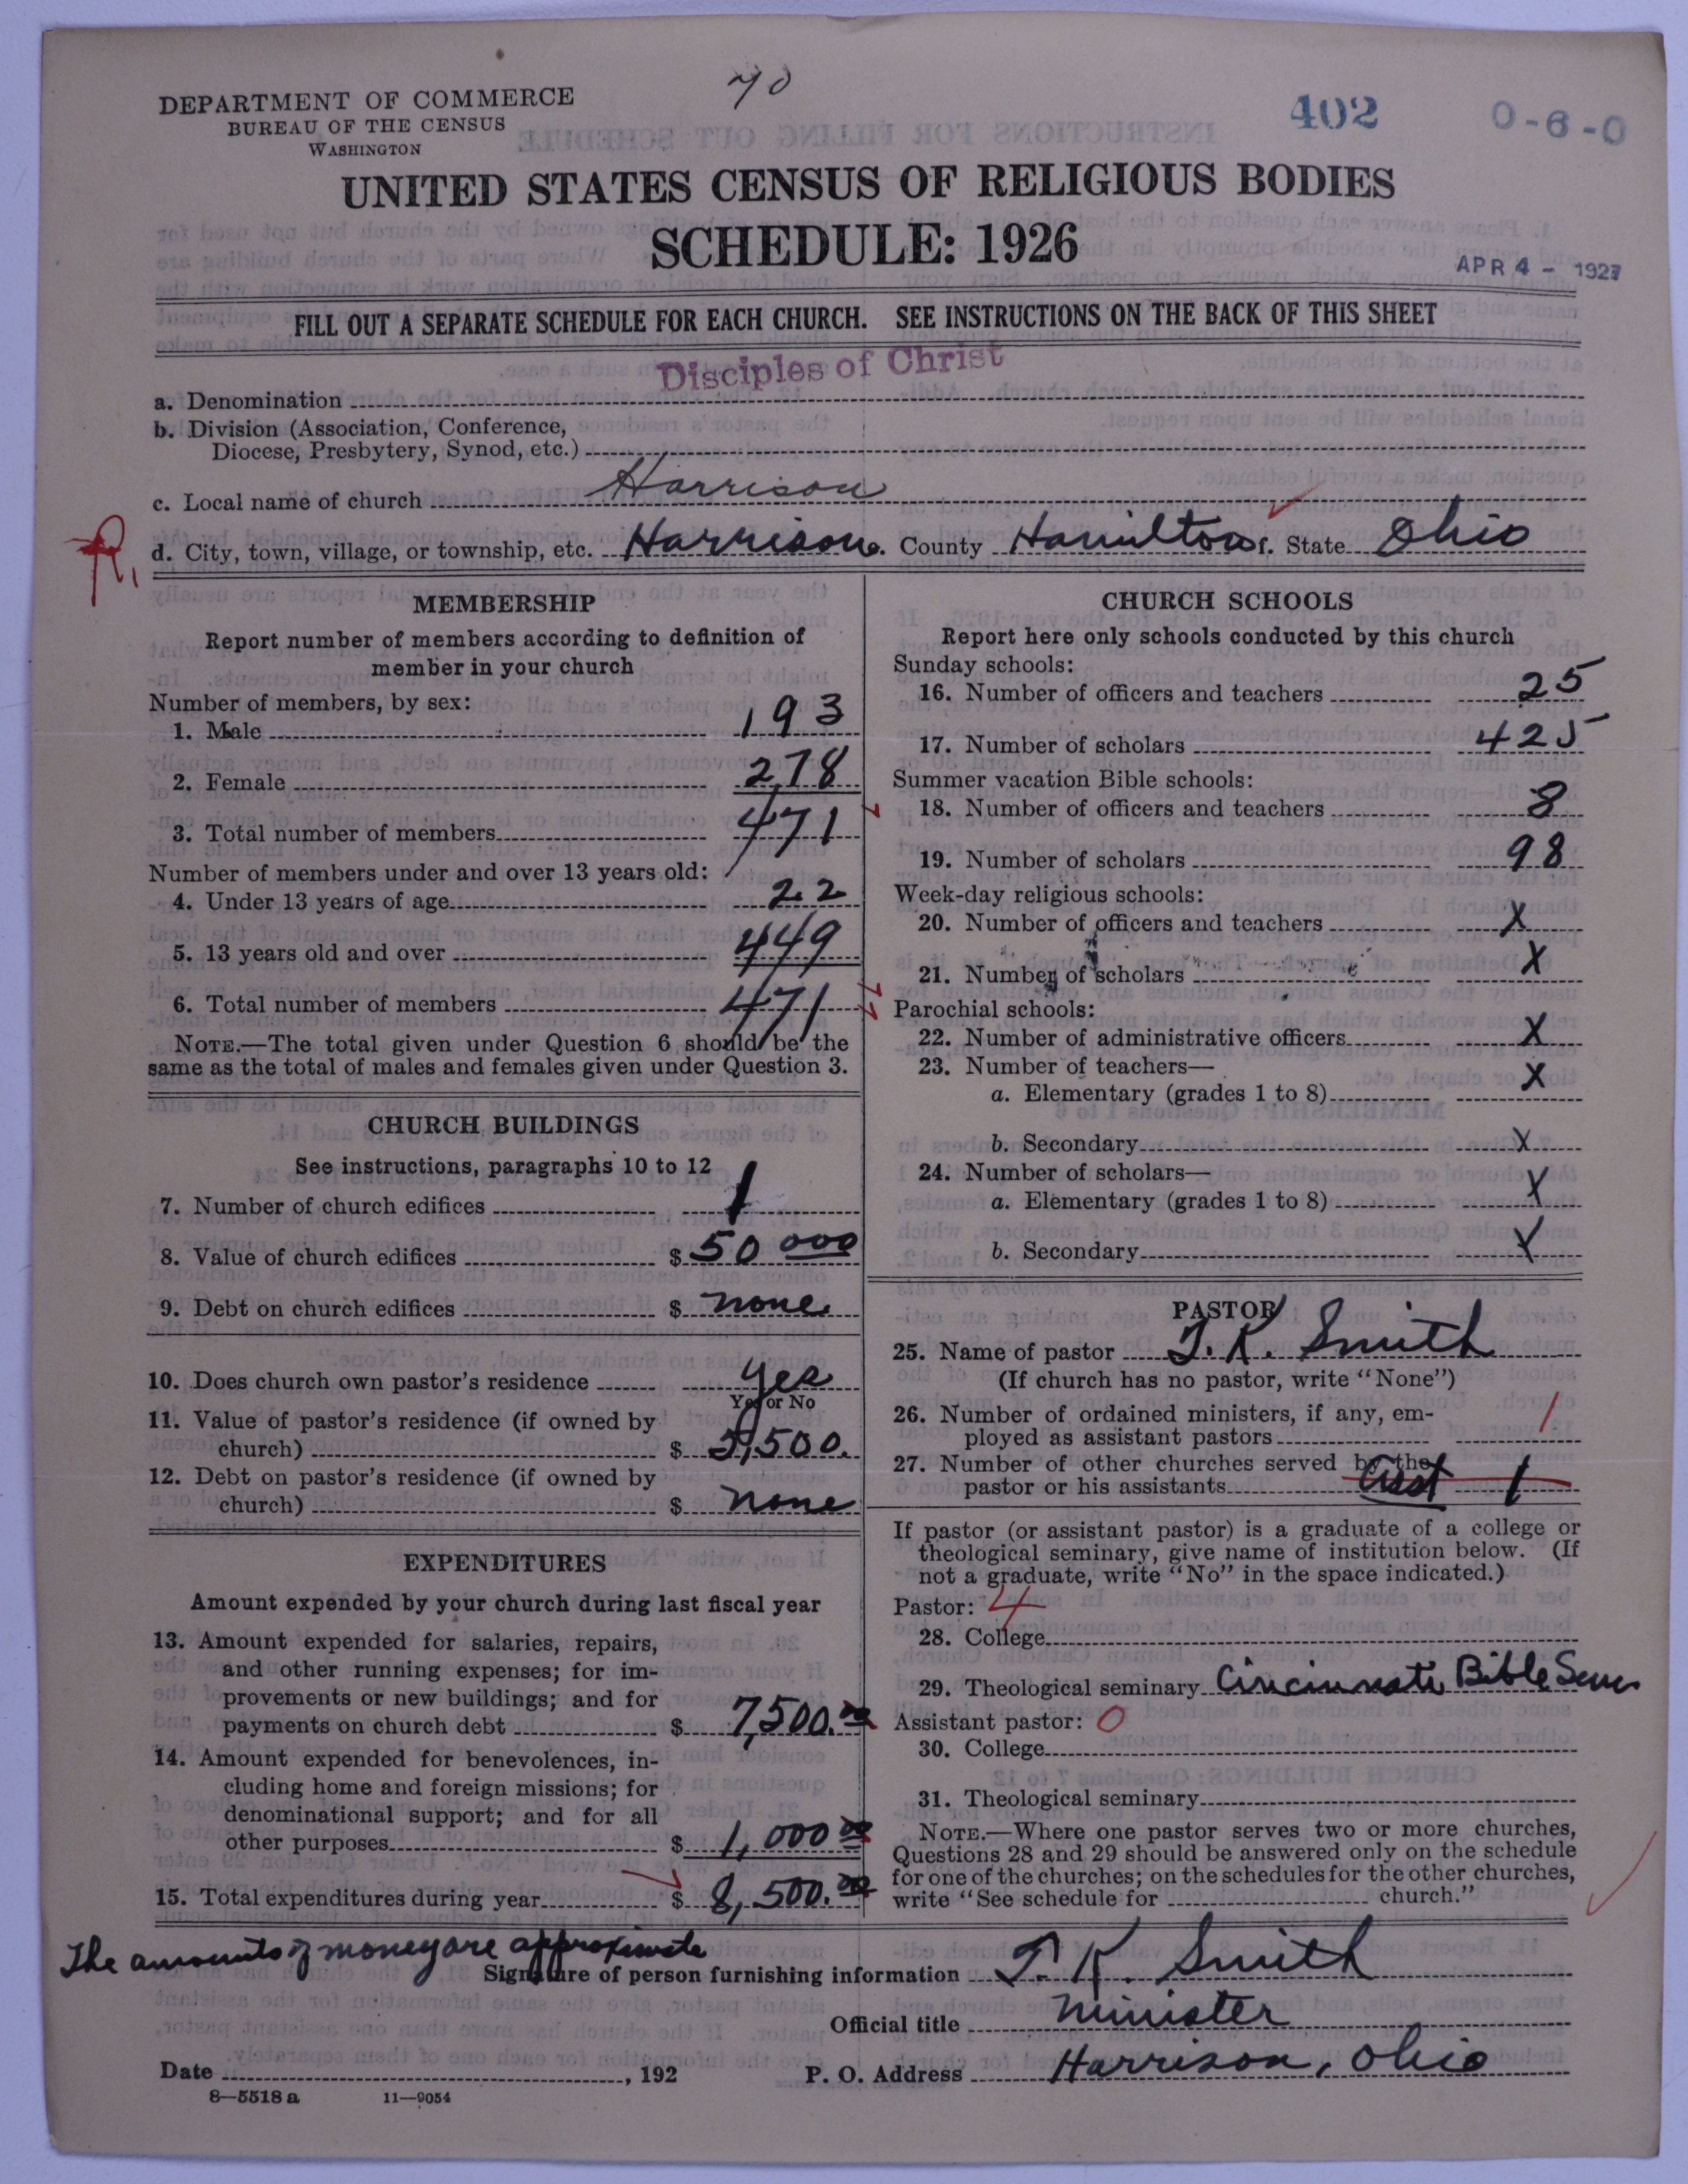 DEPARTMENT OF COMMERCE
BUREAU OF THE CENSUS
WASHINGTON
70
402
0-6-0
UNITED STATES CENSUS OF RELIGIOUS BODIES
SCHEDULE: 1926
APR 4 - 1927
FILL OUT A SEPARATE SCHEDULE FOR EACH CHURCH. SEE INSTRUCTIONS ON THE BACK OF THIS SHEET
Disciples of Christ
a. Denomination
b. Division (Association, Conference,
Diocese, Presbytery, Synod, etc.)
c. Local name of church Harrison
R,
d. City, town, village, or township, etc. Harrison e. County Hamilton f. State Ohio
MEMBERSHIP
Report number of members according to definition of
member in your church
Number of members, by sex:
1. Male 193
2. Female 278
3. Total number of members 471
Number of members under and over 13 years old:
4. Under 13 years of age 22
5. 13 years old and over 449
6. Total number of members 471
NOTE.—The total given under Question 6 should be the
same as the total of males and females given under Question 3.
CHURCH BUILDINGS
See instructions, paragraphs 10 to 12
7. Number of church edifices 1
8. Value of church edifices $ 50 000
9. Debt on church edifices $ none
10. Does church own pastor's residence yes
Yes or No
11. Value of pastor's residence (if owned by
church) $ 5,500.
12. Debt on pastor's residence (if owned by
church) $ none
EXPENDITURES
Amount expended by your church during last fiscal year
13. Amount expended for salaries, repairs,
and other running expenses; for im-
provements or new buildings; and for
payments on church debt $ 7,500.00
14. Amount expended for benevolences, in-
cluding home and foreign missions; for
denominational support; and for all
other purposes $ 1,000 00
15. Total expenditures during year $ 8,500.00
CHURCH SCHOOLS
Report here only schools conducted by this church
Sunday schools:
16. Number of officers and teachers 25
17. Number of scholars 425
Summer vacation Bible schools:
18. Number of officers and teachers 8
19. Number of scholars 98
Week-day religious schools:
20. Number of officers and teachers X
21. Number of scholars X
Parochial schools:
22. Number of administrative officers X
23. Number of teachers—
a. Elementary (grades 1 to 8) X
b. Secondary X
24. Number of scholars—
a. Elementary (grades 1 to 8) X
b. Secondary X
PASTOR
25. Name of pastor T. K. Smith
(If church has no pastor, write "None")
26. Number of ordained ministers, if any, em-
ployed as assistant pastors 1
27. Number of other churches served by the
pastor or his assistants Asst 1
If pastor (or assistant pastor) is a graduate of a college or
theological seminary, give name of institution below. (If
not a graduate, write "No" in the space indicated.)
Pastor: 4
28. College
29. Theological seminary Cincinnati Bible Sem
Assistant pastor: 0
30. College
31. Theological seminary
NOTE.—Where one pastor serves two or more churches,
Questions 28 and 29 should be answered only on the schedule
for one of the churches; on the schedules for the other churches,
write "See schedule for church."
The amounts of money are approximate
Signature of person furnishing information T. K. Smith
Official title Minister
Date , 192
P. O. Address Harrison, Ohio
8—5518 a 11—9054